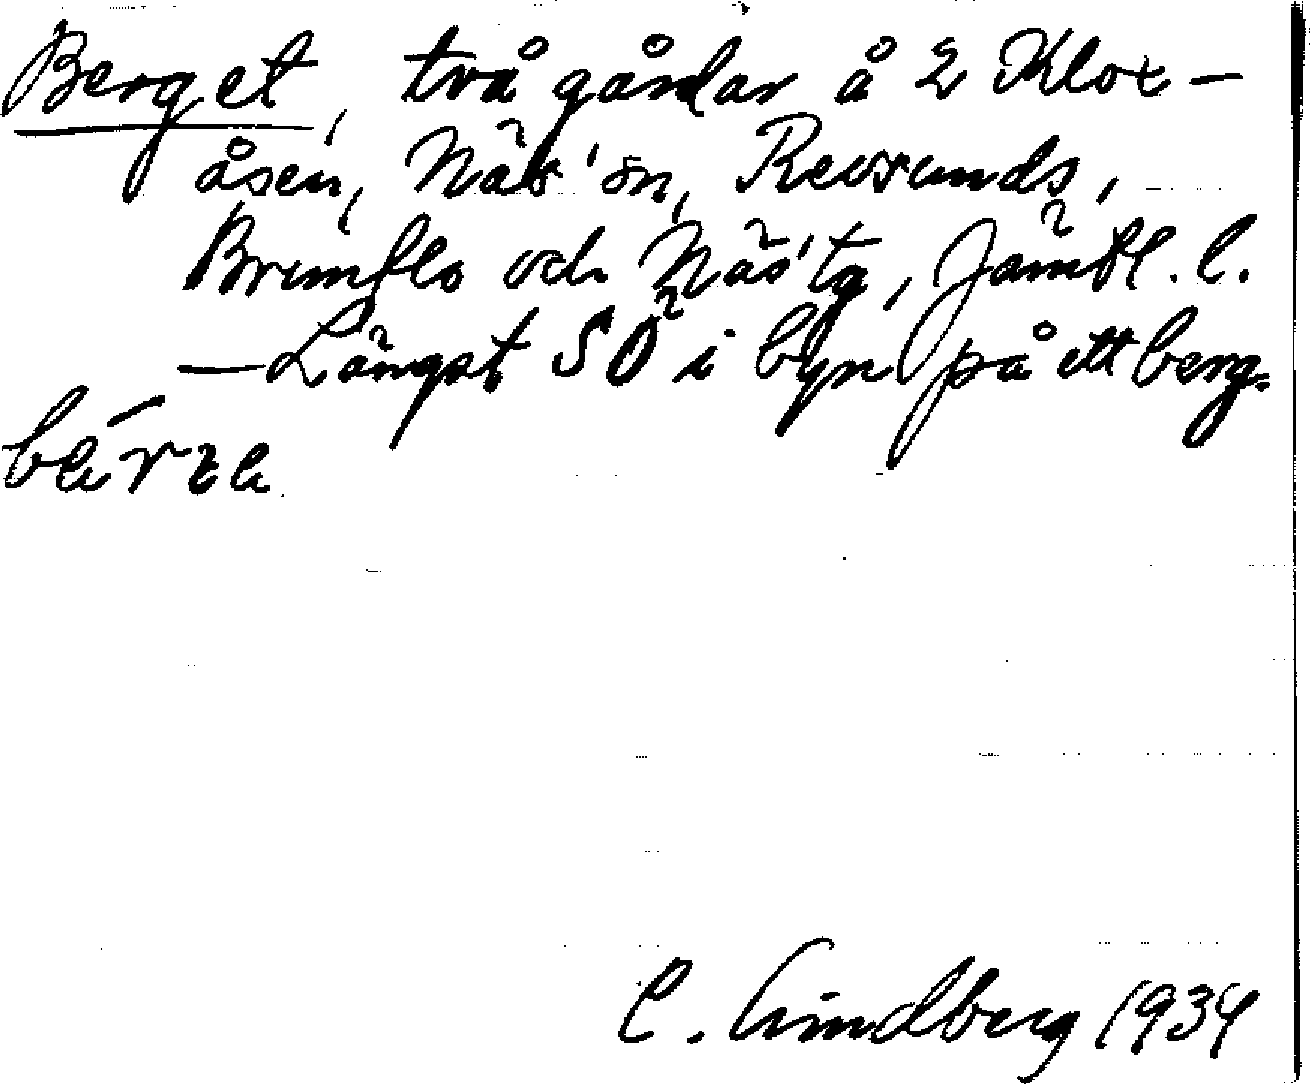 Berget, två gårdar å 2 Klox-
åsen, Näs' sn, Revsunds,
Brunflo och Näs' tg, Jämtl. l.
— Längst SÖ i byn på ett berg.
bærʒe
C. Lindberg 1934